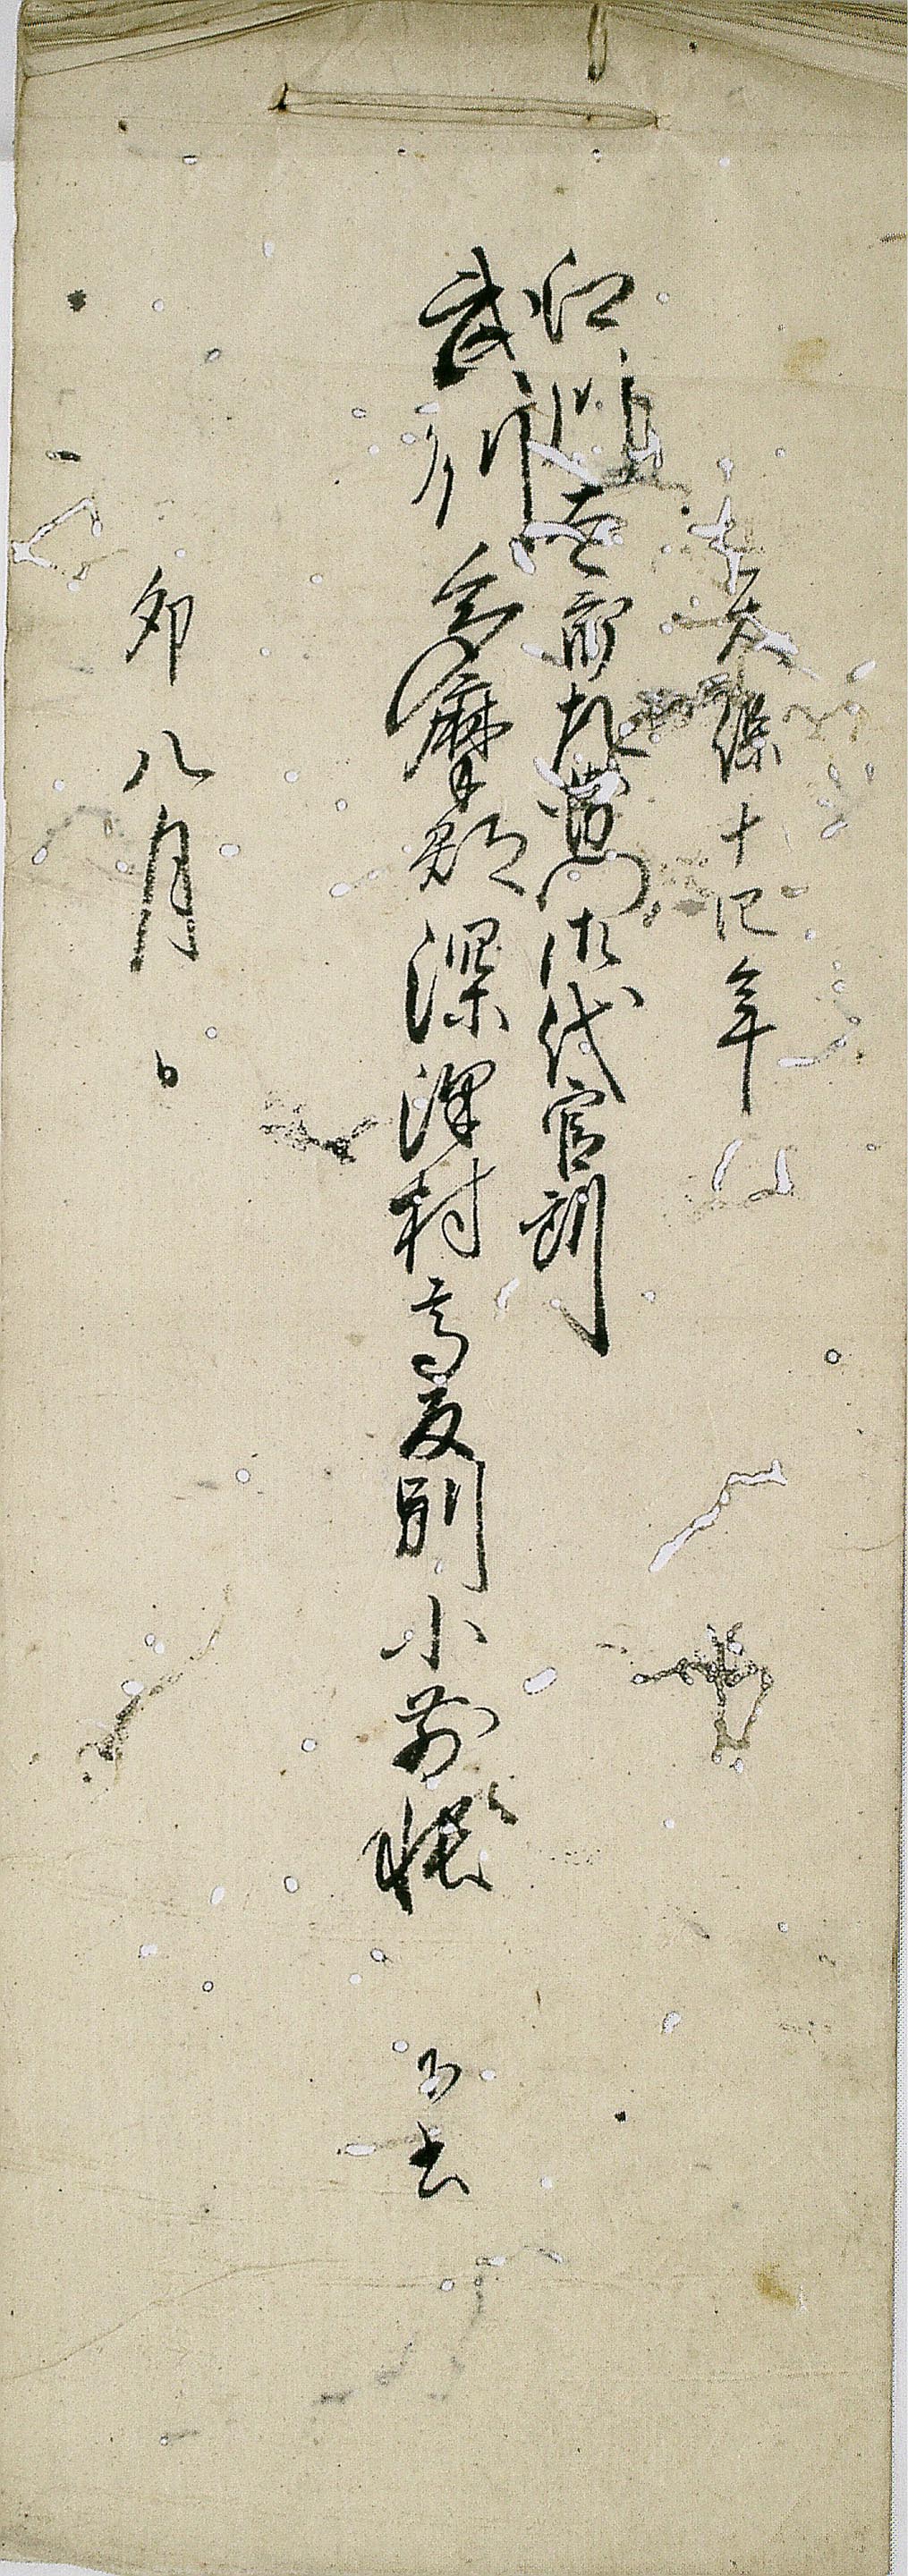 天保十四年
江川太郎左衛門御代官所
武州多摩郡深沢村高反別小前帳 下書
卯八月日